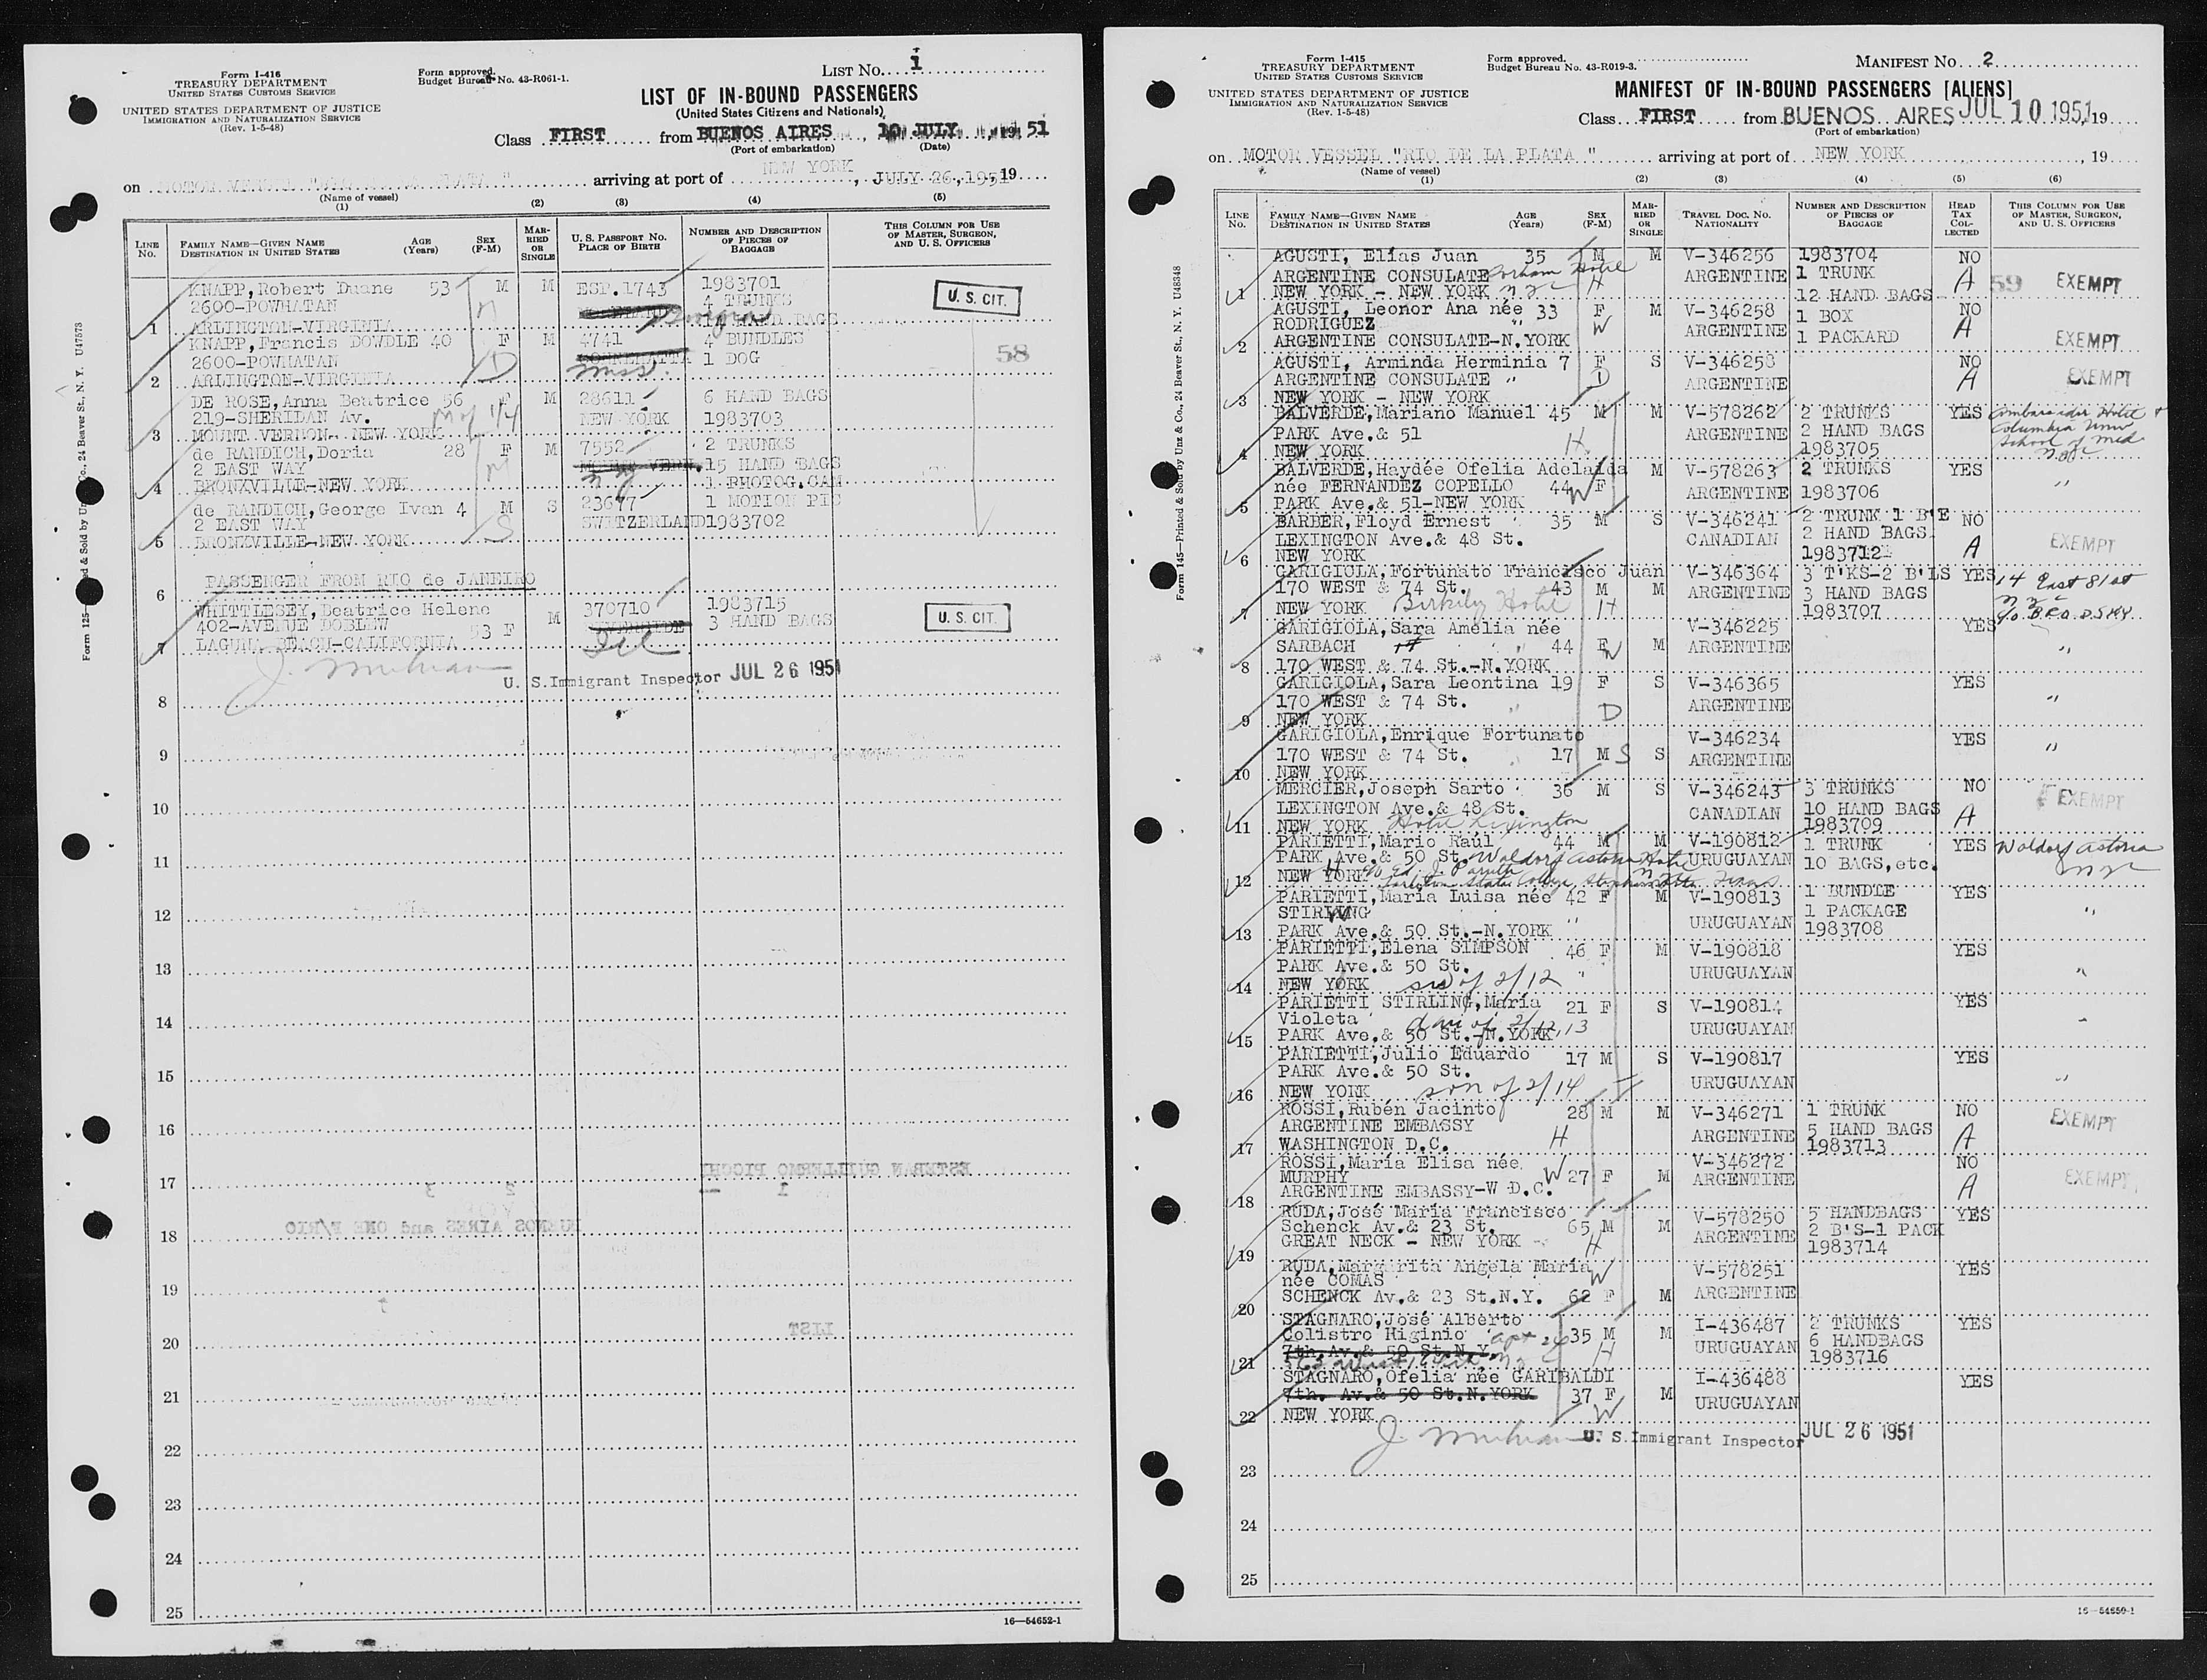 Form I-416
TREASURY DEPARTMENT
UNITED STATES CUSTOMS SERVICE
UNITED STATES DEPARTMENT OF JUSTICE
IMMIGRATION AND NATURALIZATION SERVICE
(Rev. 1-5-48)
Form approved.
Budget Bureau No. 43-R061-1.
LIST No. 1
LIST OF IN-BOUND PASSENGERS
(United States Citizens and Nationals)
Class FIRST from BUENOS AIRES, 10 JULY, 19 51
(Port of embarkation) (Date)
on MOTOR VESSEL " PLATA " arriving at port of NEW YORK, JULY 26, 1951 19
(Name of vessel)
(1) (2) (3) (4) (5)
LINE No. FAMILY NAME—GIVEN NAME DESTINATION IN UNITED STATES AGE (Years) SEX (F-M) MARRIED OR SINGLE U. S. PASSPORT No. PLACE OF BIRTH NUMBER AND DESCRIPTION OF PIECES OF BAGGAGE THIS COLUMN FOR USE OF MASTER, SURGEON, AND U. S. OFFICERS
KNAPP, Robert Duane 53 M M ESP. 1743 1983701 U. S. CIT.
2600-POWHATAN 4 TRUNKS
1 ARLINGTON-VIRGINIA 14 HAND BAGS
KNAPP, Francis DOWDLE 40 F M 4741 4 BUNDLES
2600-POWHATAN 1 DOG 58
2 ARLINGTON-VIRGINIA Miss.
DE ROSE, Anna Beatrice 56 F M 28611 6 HAND BAGS
219-SHERIDAN Av. M of 1/4 NEW YORK 1983703
3 MOUNT VERNON- NEW YORK
de RANDICH, Doria 28 F M 7552 2 TRUNKS
2 EAST WAY MOUNT VERN. 15 HAND BAGS
4 BRONXVILLE-NEW YORK N Y 1 PHOTOG.CAM
de RANDICH, George Ivan 4 M S 23677 1 MOTION PIC
2 EAST WAY S SWITZERLAND 1983702
5 BRONXVILLE-NEW YORK
PASSENGER FROM RIO de JANEIRO
6
WHITTLESEY, Beatrice Helene M 370710 1983715 U. S. CIT.
402-AVENUE DOBLEW 53 F 3 HAND BAGS
7 LAGUNA BEACH-CALIFORNIA Ill
U. S. Immigrant Inspector JUL 26 1951
8
9
10
11
12
13
14
15
16
ESTEBAN GUILLERMO PICCHI
17
2 3 1
BUENOS AIRES and ONE F/RIO
18
19
7
LIST
20
21
22
23
24
25
16—54652-1
Form 125—Printed & Sold by Unz & Co., 24 Beaver St., N. Y. U47573
Form I-415
TREASURY DEPARTMENT
UNITED STATES CUSTOMS SERVICE
UNITED STATES DEPARTMENT OF JUSTICE
IMMIGRATION AND NATURALIZATION SERVICE
(Rev. 1-5-48)
Form approved.
Budget Bureau No. 43-R019-3.
MANIFEST No. 2
MANIFEST OF IN-BOUND PASSENGERS [ALIENS]
Class FIRST from BUENOS AIRES JUL 10 1951, 19
(Port of embarkation)
on MOTOR VESSEL "RIO DE LA PLATA " arriving at port of NEW YORK, 19
(Name of vessel)
(1) (2) (3) (4) (5) (6)
LINE No. FAMILY NAME—GIVEN NAME DESTINATION IN UNITED STATES AGE (Years) SEX (F-M) MARRIED OR SINGLE TRAVEL DOC. NO. NATIONALITY NUMBER AND DESCRIPTION OF PIECES OF BAGGAGE HEAD TAX COLLECTED THIS COLUMN FOR USE OF MASTER, SURGEON, AND U. S. OFFICERS
AGUSTI, Elías Juan 35 M M V-346256 1983704 NO
ARGENTINE CONSULATE Gorham Hotel ARGENTINE 1 TRUNK A 59 EXEMPT
1 NEW YORK - NEW YORK N Y C H 12 HAND BAGS
AGUSTI, Leonor Ana née 33 F M V-346258 1 BOX NO
RODRIGUEZ " W ARGENTINE 1 PACKARD A
2 ARGENTINE CONSULATE-N.YORK EXEMPT
AGUSTI, Arminda Herminia 7 F S V-346258 NO
ARGENTINE CONSULATE " D ARGENTINE A EXEMPT
3 NEW YORK - NEW YORK
BALVERDE, Mariano Manuel 45 M M V-578262 2 TRUNKS YES Ambassador Hotel +
PARK Ave.& 51 H ARGENTINE 2 HAND BAGS Columbia Univ
4 NEW YORK 1983705 School of Med NYC
BALVERDE, Haydée Ofelia Adelaida M V-578263 2 TRUNKS YES
née FERNANDEZ COPELLO 44 W F ARGENTINE 1983706 "
5 PARK Ave.& 51-NEW YORK
BARBER, Floyd Ernest 35 M S V-346241 2 TRUNK 1 B'E NO
LEXINGTON Ave.& 48 St. CANADIAN 2 HAND BAGS A EXEMPT
6 NEW YORK 1983712
GARIGIOLA, Fortunato Francisco Juan V-346364 3 T'KS-2 B'LS YES 14 East 81 st
170 WEST & 74 St. 43 M M ARGENTINE 3 HAND BAGS N Y C
7 NEW YORK H 1983707
GARIGIOLA, Sara Amelia née V-346225 YES
SARBACH 44 F W M ARGENTINE "
8 170 WEST & 74 St.-N.YORK
GARIGIOLA, Sara Leontina 19 F S V-346365 YES
170 WEST & 74 St. " D ARGENTINE "
9 NEW YORK
GARIGIOLA, Enrique Fortunato V-346234 YES
170 WEST & 74 St. 17 M S S ARGENTINE "
10 NEW YORK
MERCIER, Joseph Sarto 36 M S V-346243 3 TRUNKS NO
LEXINGTON Ave.& 48 St. CANADIAN 10 HAND BAGS A EXEMPT
11 NEW YORK Hotel Lexington 1983709
PARIETTI, Mario Raúl 44 M M V-190812 1 TRUNK YES Waldorf Astoria
PARK Ave.& 50 St. Waldorf Astoria Hotel URUGUAYAN 10 BAGS, etc. N Y
12 NEW YORK H Tarleton State College, Texas
PARIETTI, María Luisa née 42 F M V-190813 1 BUNDLE YES
STIRLING W " URUGUAYAN 1 PACKAGE "
13 PARK Ave.& 50 St.-N.YORK 1983708
PARIETTI, Elena SIMPSON 46 F M V-190818 YES
PARK Ave.& 50 St. " URUGUAYAN "
14 NEW YORK of 2/12
PARIETTI STIRLING, María 21 F S V-190814 YES
Violeta dau of 2/12,13 URUGUAYAN
15 PARK Ave.& 50 St.-N.YORK
PARIETTI, Julio Eduardo 17 M S V-190817 YES
PARK Ave.& 50 St. URUGUAYAN "
16 NEW YORK son of 2/14
ROSSI, Rubén Jacinto 28 M M V-346271 1 TRUNK NO
ARGENTINE EMBASSY ARGENTINE 5 HAND BAGS A EXEMPT
17 WASHINGTON D.C. H 1983713
ROSSI, María Elisa née V-346272 NO
MURPHY W 27 F M ARGENTINE A EXEMPT
18 ARGENTINE EMBASSY-W D.C.
RUDA, José María Francisco V-578250 5 HANDBAGS YES
Schenck Av.& 23 St. 65 M M ARGENTINE 2 B'S-1 PACK
19 GREAT NECK - NEW YORK H 1983714
RUDA, Margarita Angela María W V-578251 YES
née COMAS ARGENTINE
20 SCHENCK Av.& 23 St.N.Y. 62 F M
STAGNARO, José Alberto I-436487 2 TRUNKS YES
Colistro Higinio apt 26 35 M M URUGUAYAN 6 HANDBAGS
21 7th. Av.& 50 St.N.Y. H 1983716
STAGNARO, Ofelia née GARIBALDI I-436488 YES
7th. Av.& 50 St.N.YORK 37 F M URUGUAYAN
22 NEW YORK W
U. S. Immigrant Inspector JUL 26 1951
23
24
25
16—54650-1
Form 145—Printed & Sold by Unz & Co., 24 Beaver St., N. Y. U48348